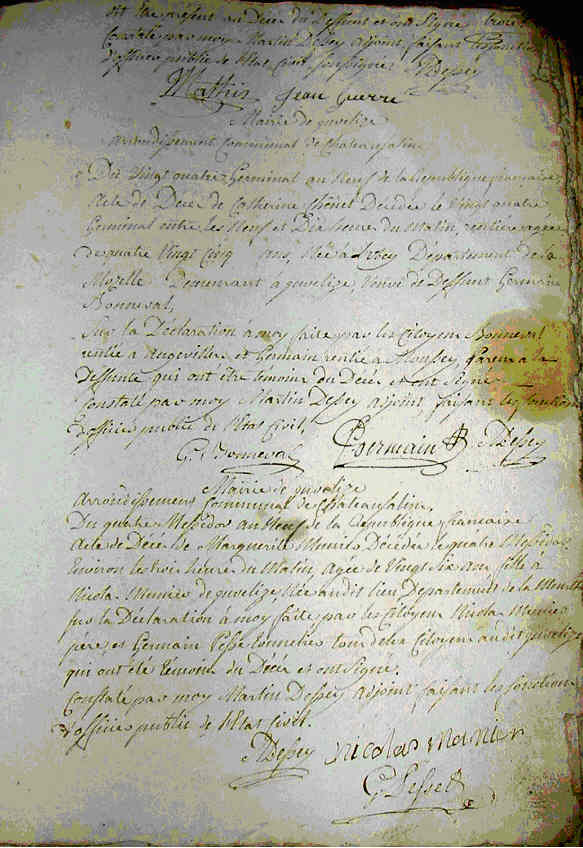 dit lieu présent au Décé du Deffunt et ont Signé
Constaté par moy Martin Dessey adjoint faisant fonction
d'officier public de l'Etat Civil soussigné. MDessey
Mathis Jean Guerre
Mairie de juvelize
arrondissement Communal de Chateausalin
Du Vingt quatre Germinal an Neuf de la République française
Acte de Décé de Catherine Decedée le Vingt quatre
Germinal entre les Neuf et Dix heures du Matin, rentiere agée
de quatre Vingt Cinq ans, Née à Département de la
Mozelle Demeurant à juvelize, Veuve de Deffunt Germain
Bonneval,
Sur la Déclaration à moy faite par les Citoyens Bonneval
et Germain à Moussey, parens a la
Deffunte qui ont été témoins du Décé et ont Signé
Constaté par moy Martin Dessey adjoint faisant les fonctions
d'officier public de l'Etat Civil,
G. Bonneval Germain MDessey
Mairie de juvelize
Arrondissement Communal de Chateausalin.
Du quatre Messidor an Neuf de la République française
Acte de Décé de Marguerite Munier Décédée le quatre Messidor
Environ les trois heures du Matin, Agée de Vingt Six ans fille à
Nicolas Munier de juvelize, Née audit lieu Departement de la Meurthe
sur la Déclaration à moy faite par les Citoyens Nicolas Munier
père, et Germain Pesse tonnelier tous deux Citoyens audit juvelize
qui ont été témoins du Décé et ont Signé.
Constaté par moy Martin Dessey adjoint faisant les fonctions
d'officier public de l'Etat Civil.
MDessey nicolas munier
G Pesse